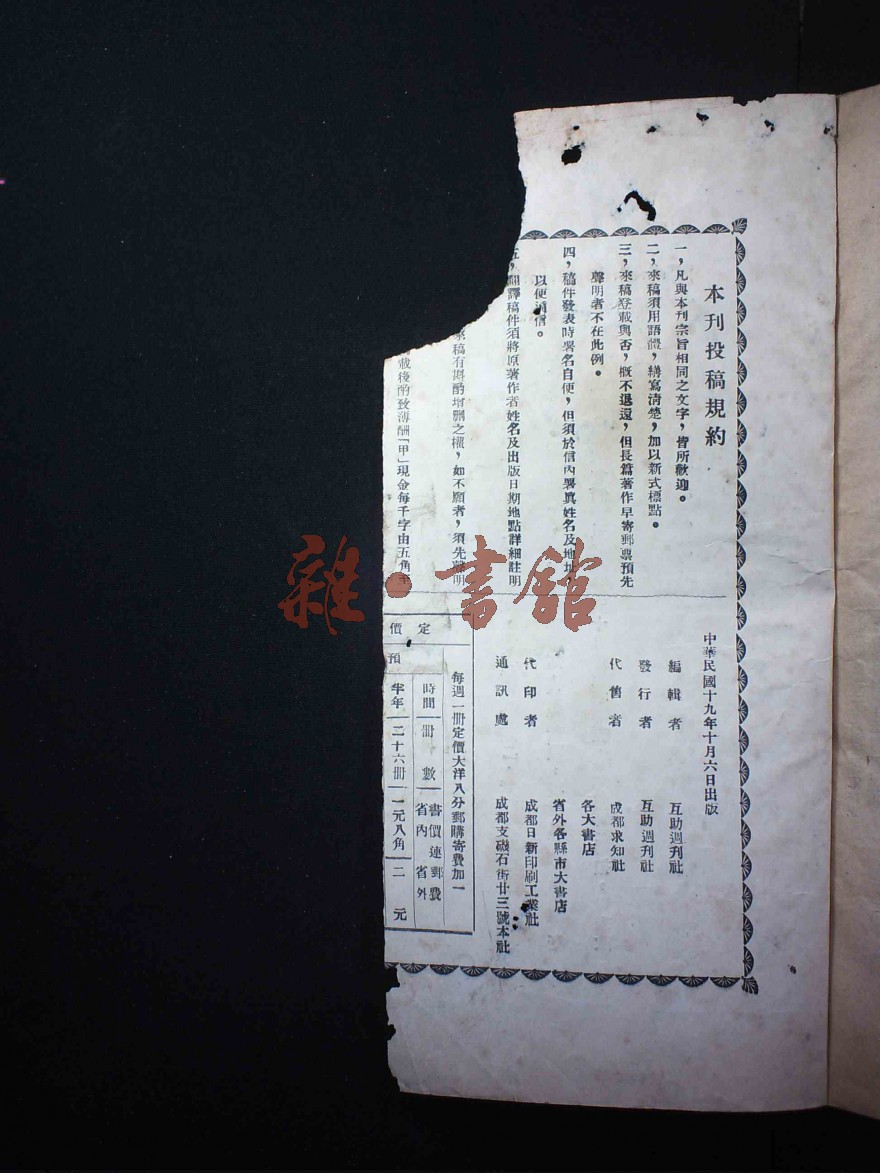 本刊投稿規約
一，凡與本刊宗旨相同之文字，皆所歡迎。
二，來稿須用語體，繕寫清楚，加以新式標點。
三，來稿登載與否，概不退還，但長篇著作早寄郵票預先
聲明者不在此例。
四，稿件發表時署名自便，但須於信內署眞姓名及地址
以便通信。
五，翻譯稿件須將原著作者姓名及出版日期地點詳細註明
來稿有斟酌增删之權，如不願者，須先聲明
載後酌致薄酬「甲」現金每千字由五角至
中華民國十九年十月六日出版
編輯者　互助週刊社
發行者　互助週刊社
代售者　成都求知社
各大書店
省外各縣市大書店
代印者　成都日新印刷工業社
通訊處　成都支磯石街廿三號本社
每週一冊定價大洋八分郵購寄費加一
定價
時間　冊數　書價連郵費　省內　省外
預
半年　二十六冊　一元八角　二元
雜·書館